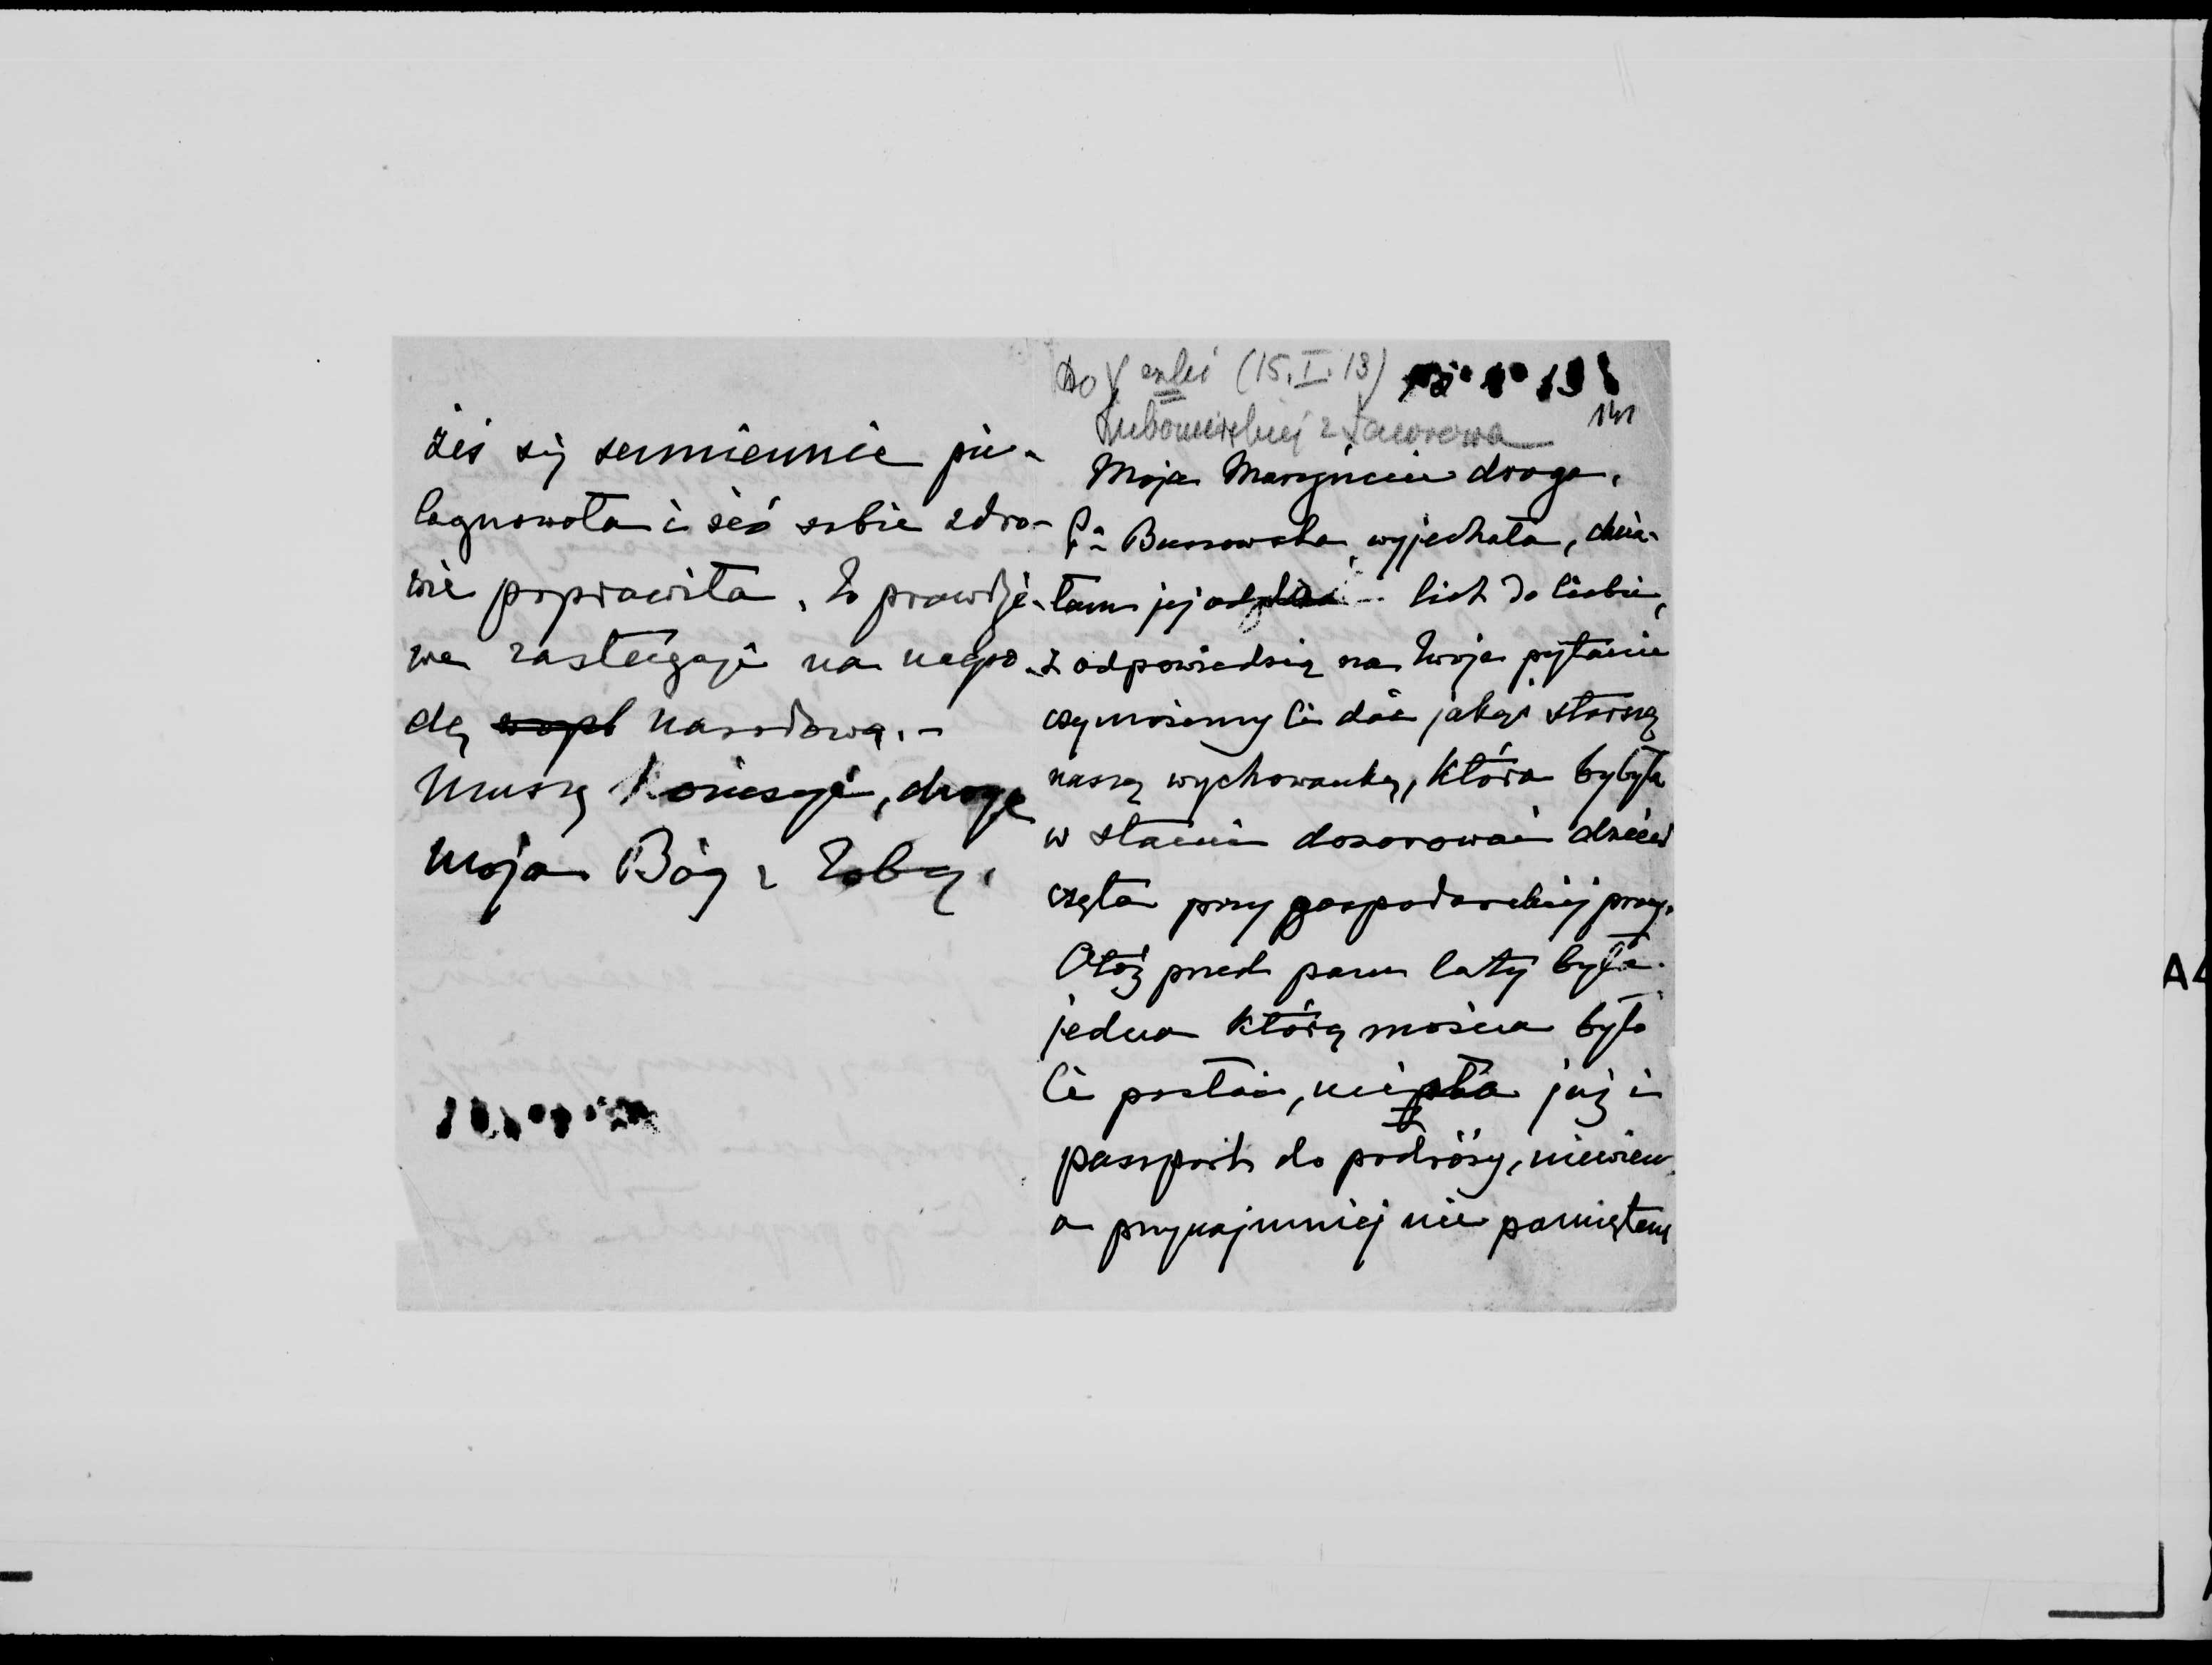 żeś się sumiennie pie-
lagnowała i żeś sobie zdro-
wie poprawiła. To prawdzi-
wa zasługuje na nagro-
dę narodową.-
Muszę kończyć, droga
moja Bóg z Tobą.
Do X (15.I.13)
Lubomirskiej z Jaworowa
141
Moja Maryńciu droga.
P. wyjechała, chcia-
łam jej list do Ciebie,
z odpowiedzią na Twoje pytanie
czy możemy Ci dać jakąś starszą
naszą wychowankę, która by była
w stanie dozorować dziew
częta przy gospodarskiej pracy.
Otóż przed paru laty była
jedna którą można było
Ci posłać, już i
passport do podróży, niewiem
a przynajmniej nie pamiętam
A4